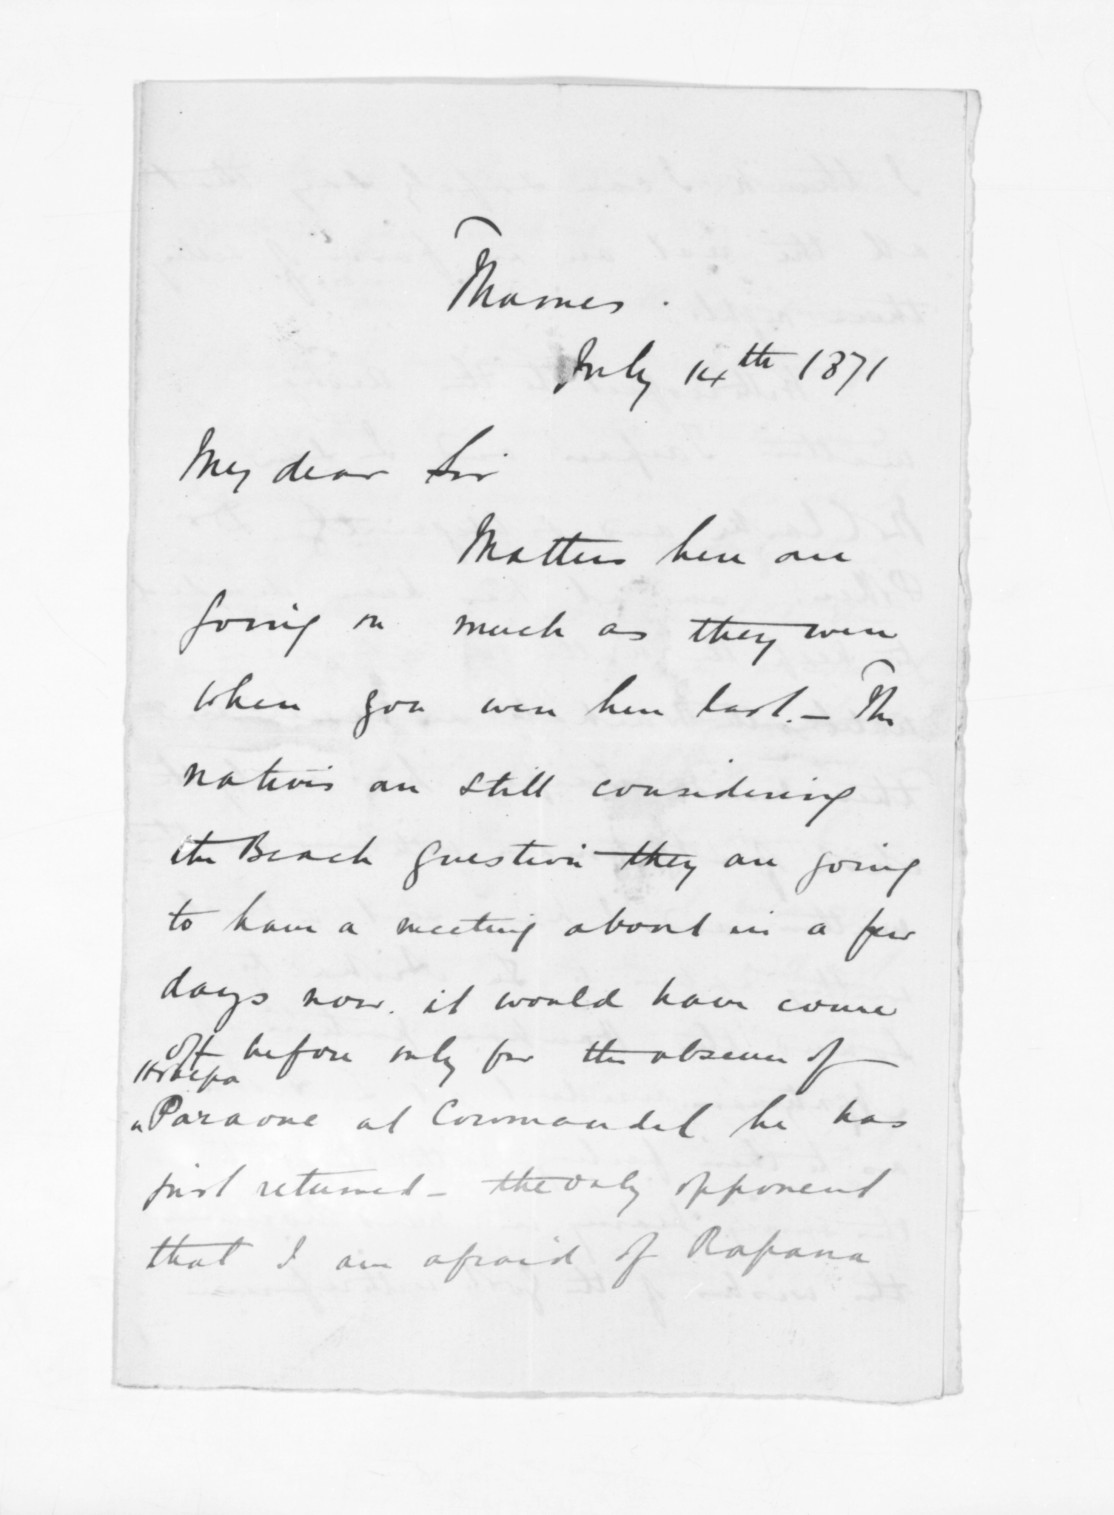 Thames.
July 14th 1871
My dear Sir
Matters here are
going on much as they were
when you were here last. – The
natives are still considering
the Beach question they are going
to have a meeting about in a few
days now. it would have come
off before only for the absence of
Hohepa
Paraone at Coromandel he has
just returned – the only opponent
that I am afraid of Rapana